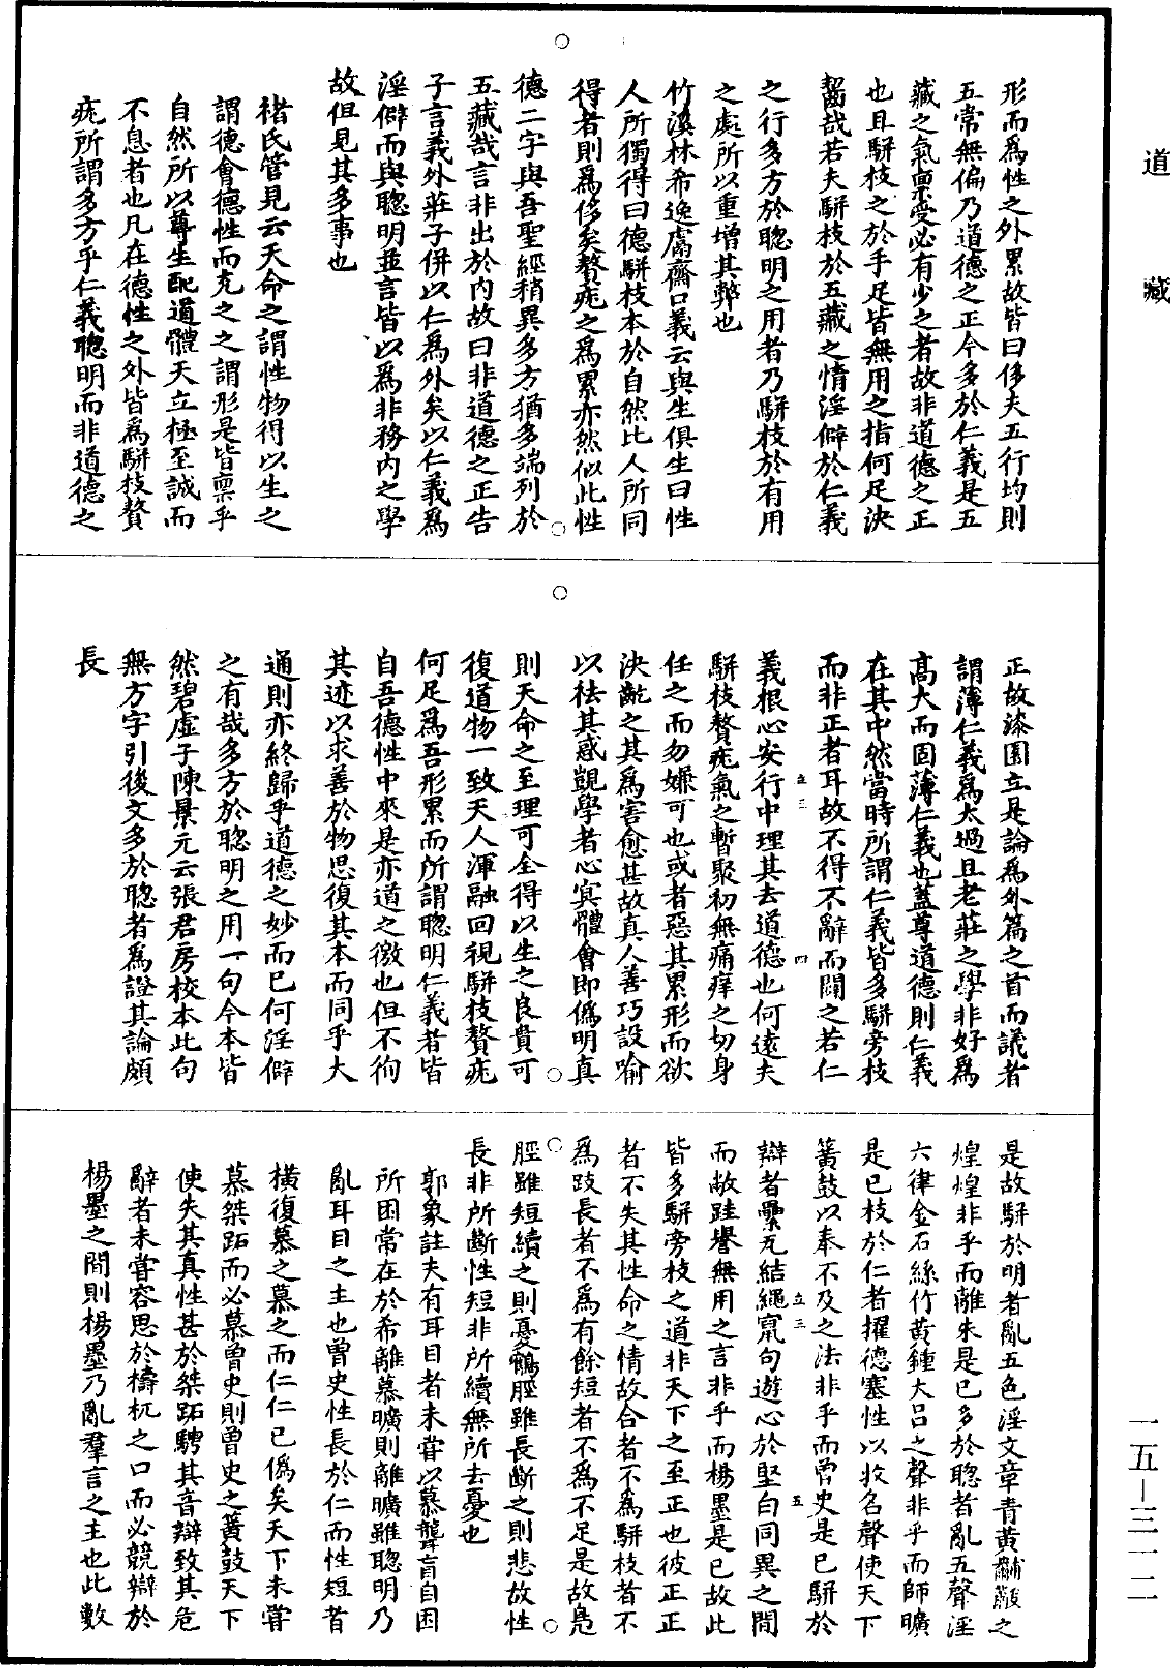 道藏
形而爲性之外累故皆曰侈夫五行均則
五常無偏乃道德之正今多於仁義是五
藏之氣禀受必有少之者故非道德之正
也且駢枝之於手足皆無用之指何足決
齧哉若夫駢枝於五藏之情淫僻於仁義
之行多方於聰明之用者乃駢枝於有用
之處所以重增其弊也
竹溪林希逸鬳齋口義云與生俱生曰性
人所獨得曰德駢枝本於自然比人所同
得者則爲侈矣贅疣之爲累亦然似此性
德二字與吾聖經稍異多方猶多端列於
五藏哉言非出於內故曰非道德之正告
子言義外莊子併以仁爲外矣以仁義爲
淫僻而與聰明並言皆以爲非務內之學
故但見其多事也
褚氏管見云天命之謂性物得以生之
謂德會德性而充之之謂形是皆禀乎
自然所以尊生配道體天立極至誠而
不息者也凡在德性之外皆爲駢枝贅
疣所謂多方乎仁義聰明而非道德之
正故漆園立是論爲外篇之首而議者
謂薄仁義爲太過且老莊之學非好爲
高大而固薄仁義也蓋尊道德則仁義
在其中然當時所謂仁義皆多駢旁枝
而非正者耳故不得不辭而闢之若仁
義根心安行中理其去道德也何遠夫
駢枝贅疣氣之暫聚初無痛痒之切身
任之而勿嫌可也或者惡其累形而欲
決齕之其爲害愈甚故真人善巧設喻
以祛其惑覬學者心㝠體會即僞明真
則天命之至理可全得以生之良貴可
復道物一致天人渾融回視駢枝贅疣
何足爲吾形累而所謂聰明仁義者皆
自吾德性中來是亦道之徼也但不徇
其迹以求善於物思復其本而同乎大
通則亦終歸乎道德之妙而已何淫僻
之有哉多方於聰明之用一句今本皆
然碧虛子陳景元云張君房校本此句
無方字引後文多於聰者爲證其論頗
長
是故駢於明者亂五色淫文章青黃黼黻之
煌煌非乎而離朱是已多於聰者亂五聲淫
六律金石絲竹黃鍾大呂之聲非乎而師曠
是已枝於仁者擢德塞性以收名聲使天下
簧鼓以奉不及之法非乎而曾史是已駢於
辯者纍瓦結繩竄句遊心於堅白同異之間
而敝跬譽無用之言非乎而楊墨是已故此
皆多駢旁枝之道非天下之至正也彼正正
者不失其性命之情故合者不爲駢枝者不
爲跂長者不爲有餘短者不爲不足是故鳧
脛雖短續之則憂鶴脛雖長斷之則悲故性
長非所斷性短非所續無所去憂也
郭象註夫有耳目者未甞以慕聾盲自困
所困常在於希離慕曠則離曠雖聰明乃
亂耳目之主也曾史性長於仁而性短者
橫復慕之慕之而仁仁已僞矣天下未甞
慕桀跖而必慕曾史則曾史之簧鼓天下
使失其真性甚於桀跖騁其音辯致其危
辭者未甞容思於檮杌之口而必競辯於
楊墨之間則楊墨乃亂羣言之主也此數
五三
四
五三
五
一五—三一二